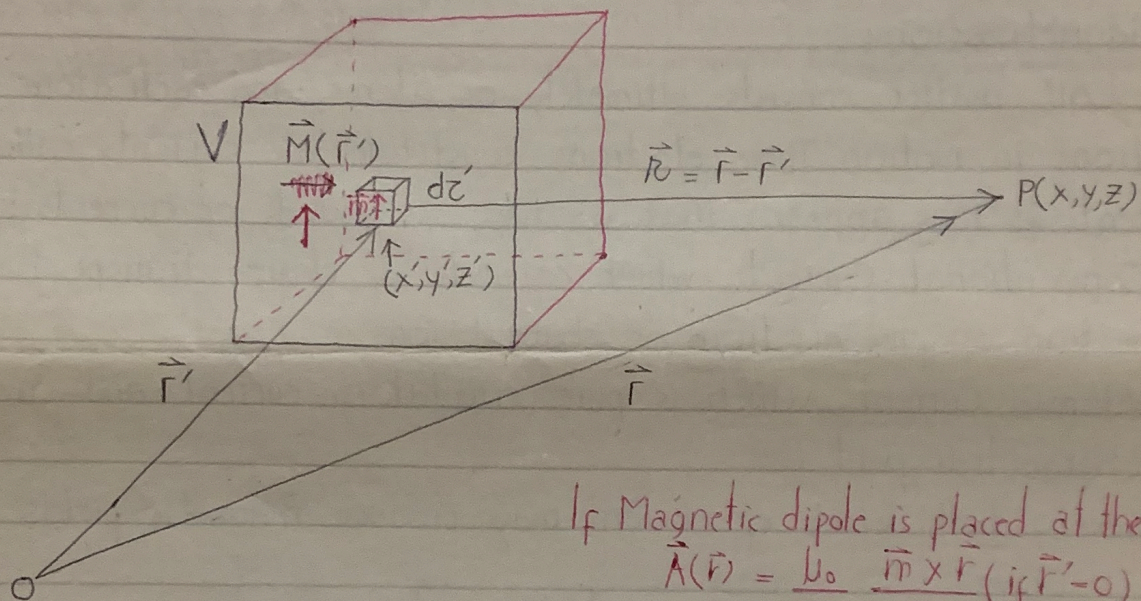 V
M⃗(r⃗′)
dτ′
r⃗ = r⃗ - r⃗′
P(x,y,z)
m⃗
(x′,y′,z′)
r⃗′
r⃗
O
If Magnetic dipole is placed at the
A⃗(r⃗) = μ₀ m⃗ × r⃗ (if r⃗′=0)